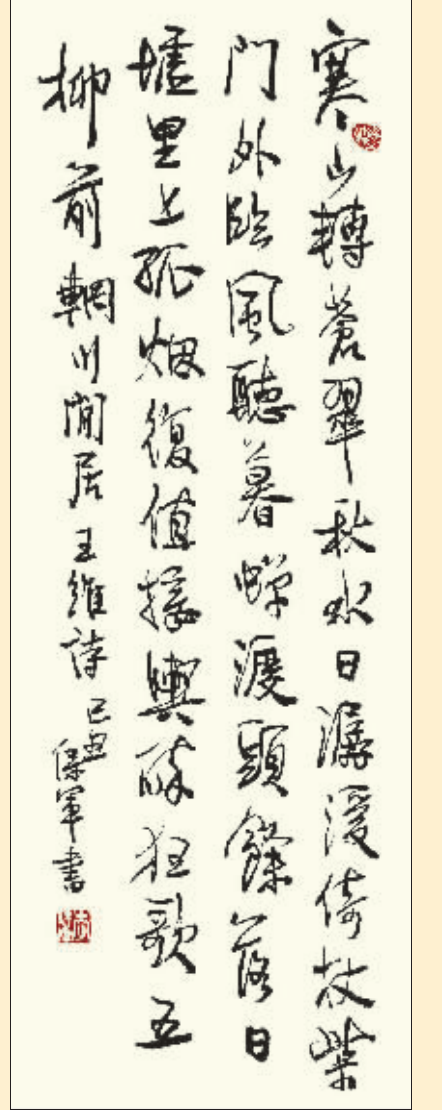 寒山轉蒼翠秋水日潺湲倚杖柴
門外臨風聽暮蟬渡頭餘落日
墟里上孤烟復值接輿醉狂歌五
柳前輞川閒居王維詩己丑
保軍書